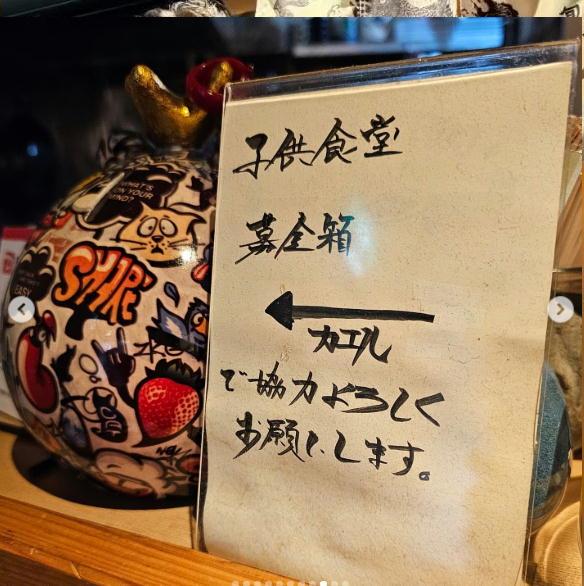 子供食堂
募金箱
カエル
で協力よろしく
お願いします。
WHAT'S
ON YOUR
MIND?
SHARE
EASY